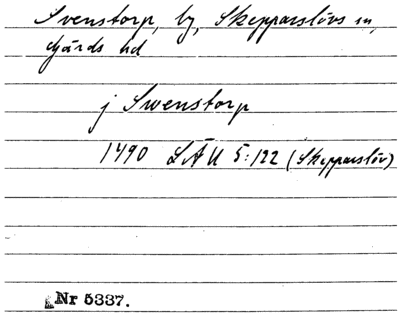 Svenstorp, by, Skepparslövs sn,
Gärds hd
j Swenstorp
1490 LÄU 5:122 (Skepparslöv)
Nr 5337.